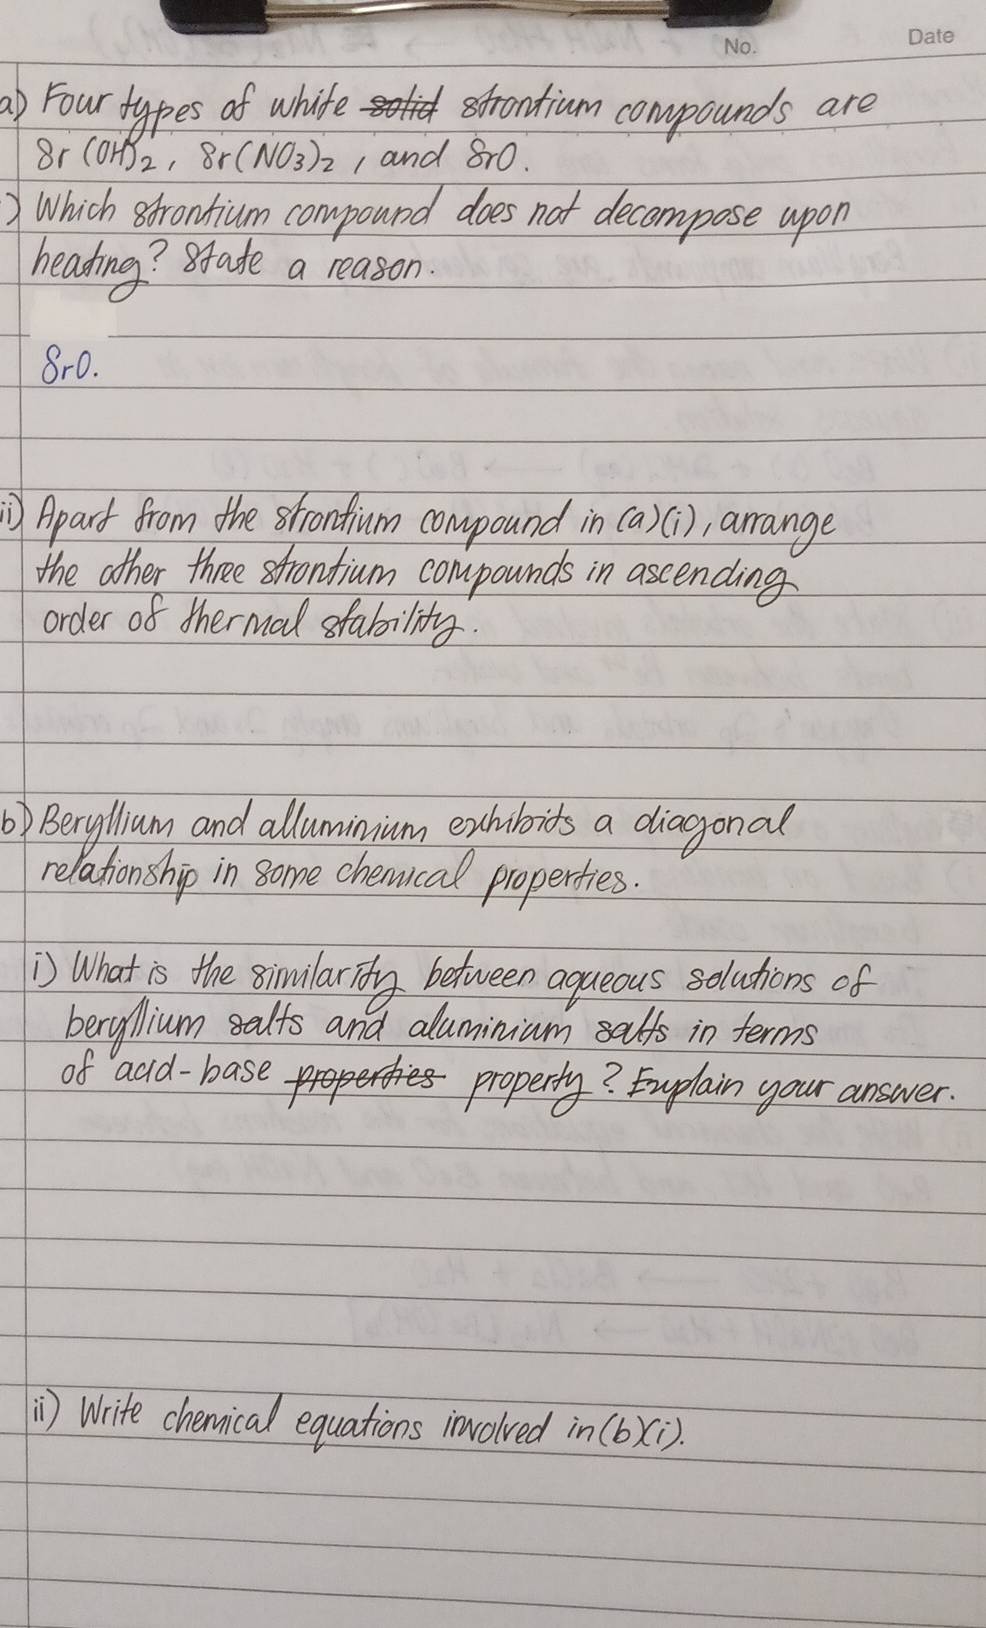 No.
Date
a) Four types of white solid strontium compounds are
Sr(OH)2, Sr(NO3)2, and SrO.
) Which strontium compound does not decompose upon
heating? State a reason.
SrO.
ii) Apart from the strontium compound in (a)(i), arrange
the other three strontium compounds in ascending
order of thermal stability.
b) Beryllium and alluminium exhibits a diagonal
relationship in some chemical properties.
i) What is the similarity between aqueous solutions of
beryllium salts and aluminium salts in terms
of acid-base properties property? Explain your answer.
ii) Write chemical equations involved in (b)(i).